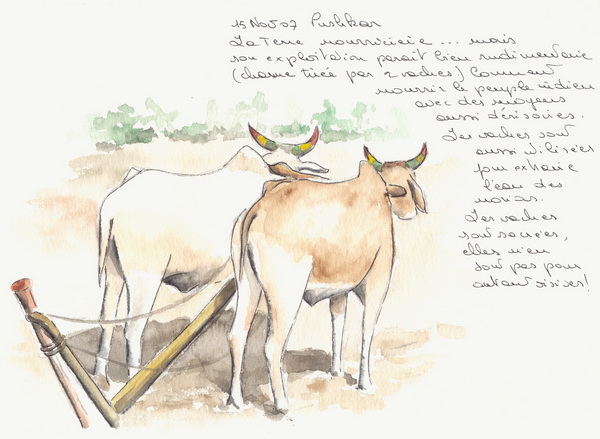 15 Nov 07 Pushkar
La Terre nourricière ... mais
son exploitation paraît bien rudimentaire
(charrue tirée par 2 vaches) Comment
nourrir le peuple indien
avec des moyens
aussi dérisoires.
Les vaches sont
aussi utilisées
pour extraire
l'eau des
norias.
Les vaches
sont sacrées,
elles n'en
sont pas pour
autant oisives!